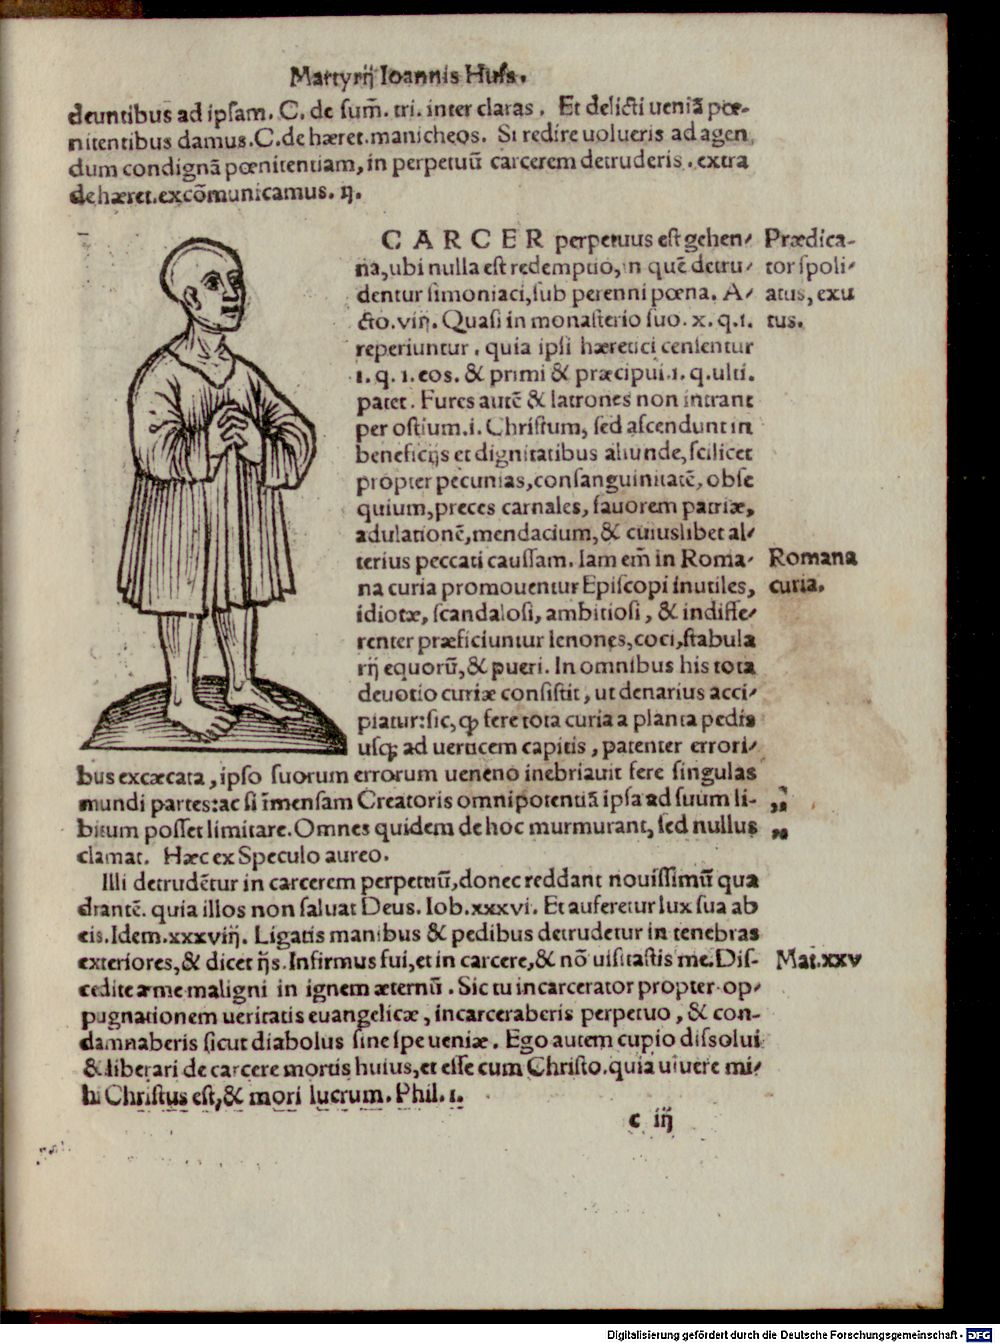 Martyrij Ioannis Huss.
deuntibus ad ipsam. C. de sum̃. tri. inter claras. Et delicti ueniã pœ-
nitentibus damus. C. de hæret. manicheos. Si redire uolueris ad agen
dum condignã pœnitentiam, in perpetuũ carcerem detruderis. extra
de hæret. excõmunicamus. ij.
CARCER perpetuus est gehen/
na, ubi nulla est redemptio, in quẽ detru/
dentur simoniaci, sub perenni pœna. A/
cto. viij. Quasi in monasterio suo. x. q. 1.
reperiuntur. quia ipsi hæretici censentur
1. q. 1. eos. & primi & præcipui. 1. q. ulti.
patet. Fures autẽ & latrones non intrant
per ostium. i. Christum, sed ascendunt in
beneficijs et dignitatibus aliunde, scilicet
propter pecunias, consanguinitatẽ, obse
quium, preces carnales, fauorem patriæ,
adulationẽ, mendacium, & cuiuslibet al/
terius peccati caussam. Iam em̃ in Roma/
na curia promouentur Episcopi inutiles,
idiotæ, scandalosi, ambitiosi, & indiffe/
renter præficiuntur lenones, coci, stabula
rij equorũ, & pueri. In omnibus his tota
deuotio curiæ consistit, ut denarius acci/
piatur: sic, ꝙ fere tota curia a planta pedis
usqꝫ ad uerticem capitis, patenter errori/
bus excæcata, ipso suorum errorum ueneno inebriauit fere singulas
mundi partes: ac si im̃ensam Creatoris omnipotentiã ipsa ad suum li-
bitum posset limitare. Omnes quidem de hoc murmurant, sed nullus
clamat. Hæc ex Speculo aureo.
Illi detrudẽtur in carcerem perpetuũ, donec reddant nouissimũ qua
drantẽ. quia illos non saluat Deus. Iob. xxxvi. Et auferetur lux sua ab
eis. Idem. xxxviij. Ligatis manibus & pedibus detrudetur in tenebras
exteriores, & dicet ijs. Infirmus fui, et in carcere, & nõ uisitastis me. Dis-
cedite a me maligni in ignem æternũ. Sic tu incarcerator propter op/
pugnationem ueritatis euangelicæ, incarceraberis perpetuo, & con-
damnaberis sicut diabolus sine spe ueniæ. Ego autem cupio dissolui
& liberari de carcere mortis huius, et esse cum Christo. quia uiuere mi/
hi Christus est, & mori lucrum. Phil. 1.
c iij
Prædica-
tor spoli/
atus, exu
tus.
Romana
curia.
„
„
Mat. xxv
Digitalisierung gefördert durch die Deutsche Forschungsgemeinschaft - DFG